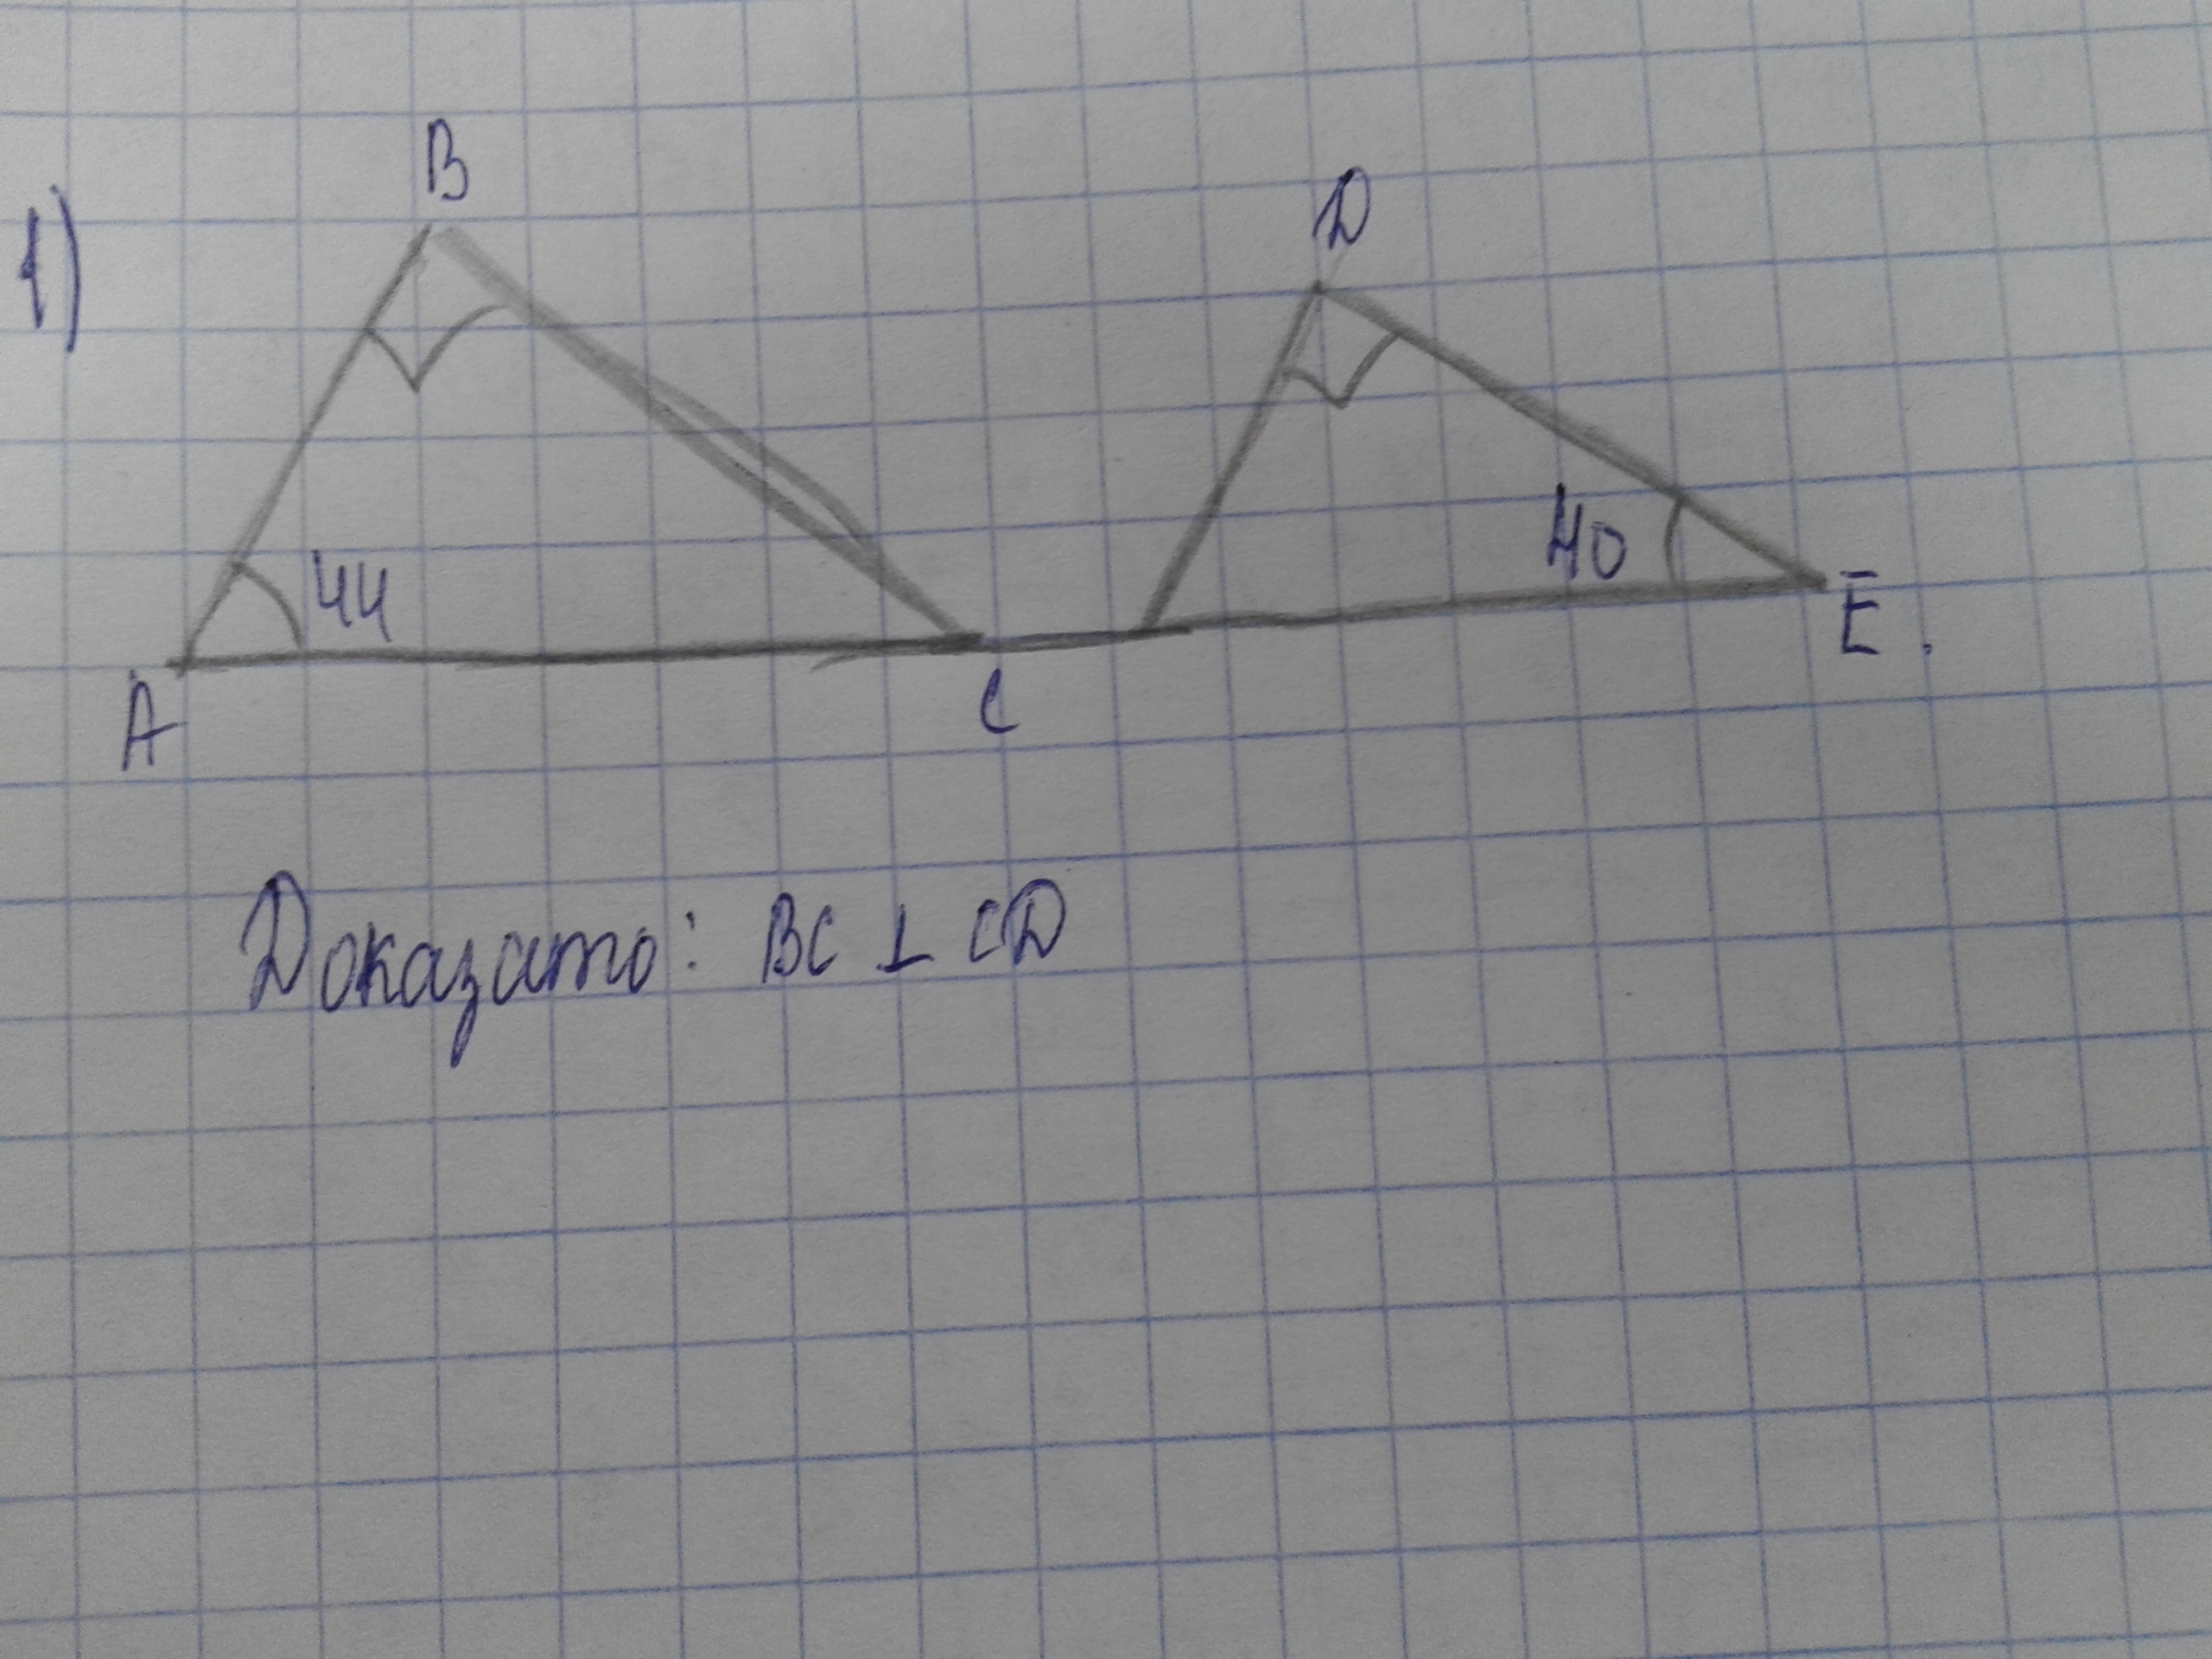 1)
B
D
44
40
A
C
E.
Доказать: BC ⊥ CD